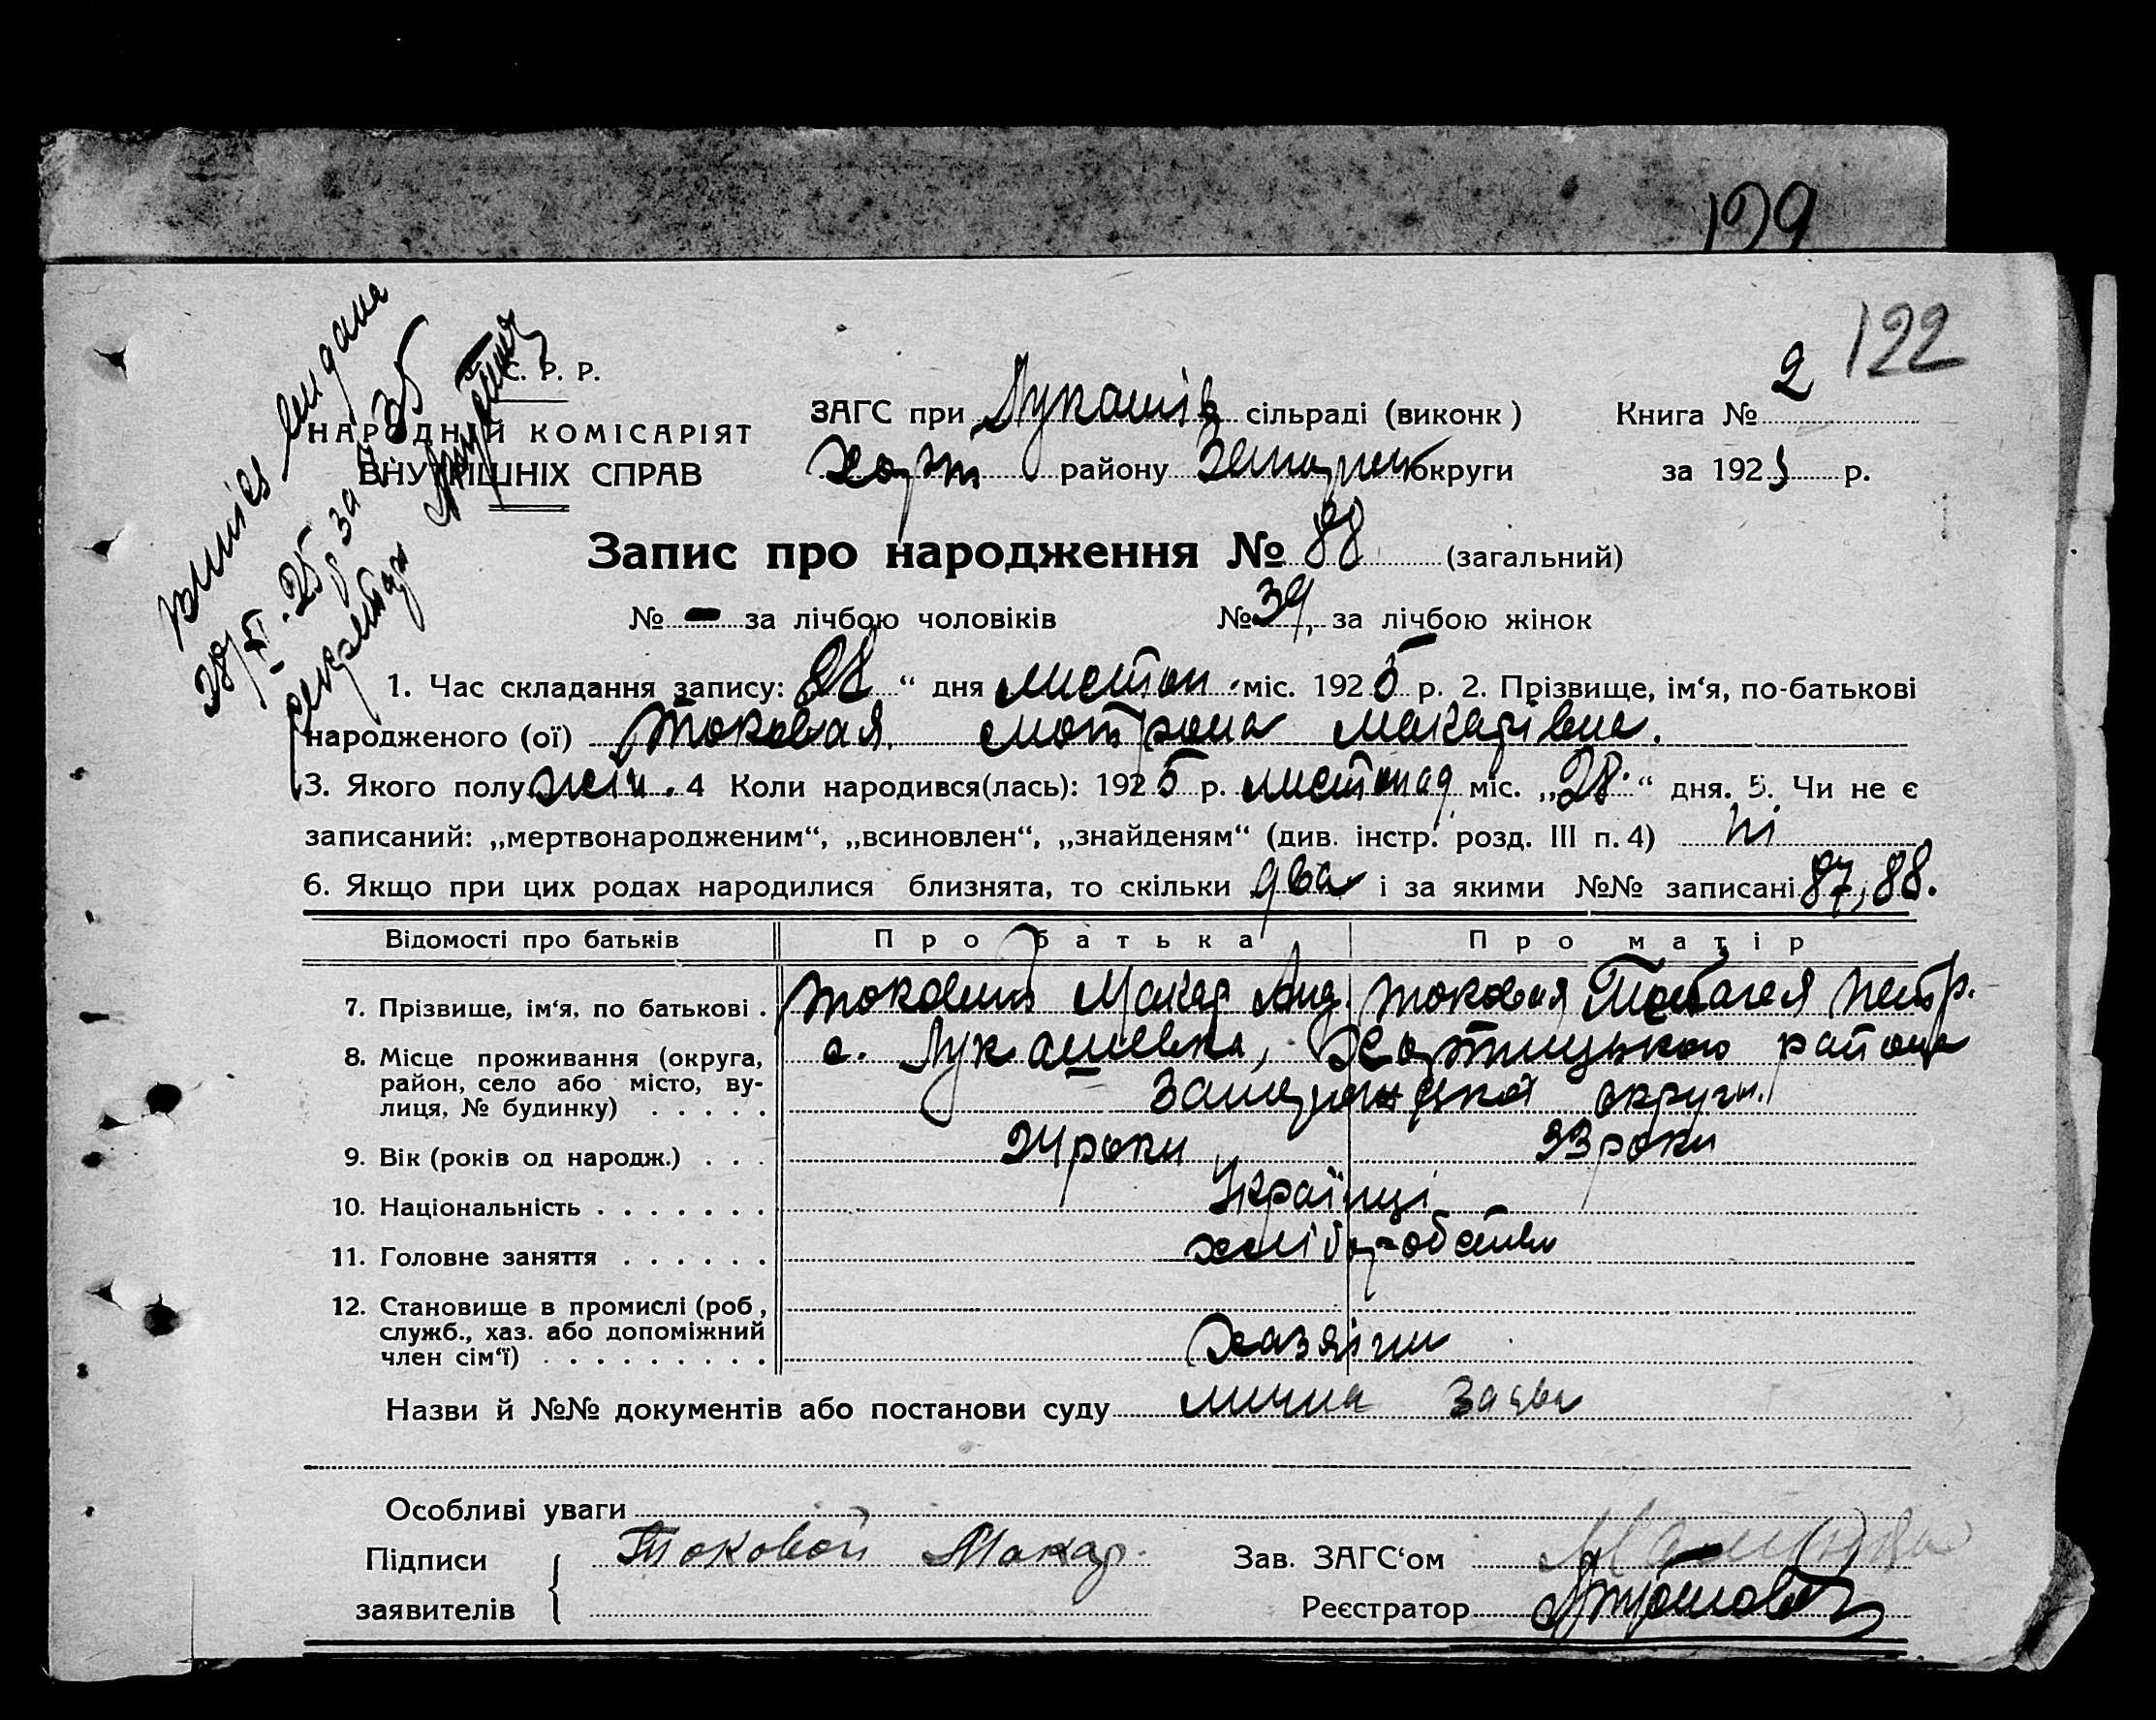 129
122
2
С. Р. Р.
НАРОДНІЙ КОМІСАРІЯТ
ВНУТРІШНІХ СПРАВ
ЗАГС при Лукашів сільраді (виконк)
Хорт району Запоріж округи
Книга № 2
за 1925 р.
28/XI-25 р за № 35
секретар
Запис про народження № 88 (загальний)
№ — за лічбою чоловіків № 39, за лічбою жінок
1. Час складання запису: 28 “ дня листоп. міс. 1925 р. 2. Прізвище, ім‘я, по-батькові
народженого (ої) Токовая Мотрона Макарівна.
3. Якого полу жін. 4 Коли народився(лась): 1925 р. листопад міс. „28“ дня. 5. Чи не є
записаний: „мертвонародженим“, „всиновлен“, „знайденям“ (див. інстр. розд. III п. 4) ні
6. Якщо при цих родах народилися близнята, то скільки два і за якими №№ записані 87, 88.
Відомості про батьків Про батька Про матір
7. Прізвище, ім‘я, по батькові . Токовий Макар Анд. Токовая Петр.
8. Місце проживання (округа, с. Лукашевка, Хортицького району
район, село або місто, ву-
лиця, № будинку) . . . . . Запоріжської округи.
9. Вік (років од народж.) . . . 24 роки 23 роки
10. Національність . . . . . . . Українці
11. Головне заняття . . . . . . хліборобство
12. Становище в промислі (роб,
служб., хаз. або допоміжний
член сім‘ї) . . . . . . . . . Хазяіни
Назви й №№ документів або постанови суду лична заява
Особливі уваги
Підписи Токовой Макар.
заявителів
Зав. ЗАГС‘ом
Реєстратор